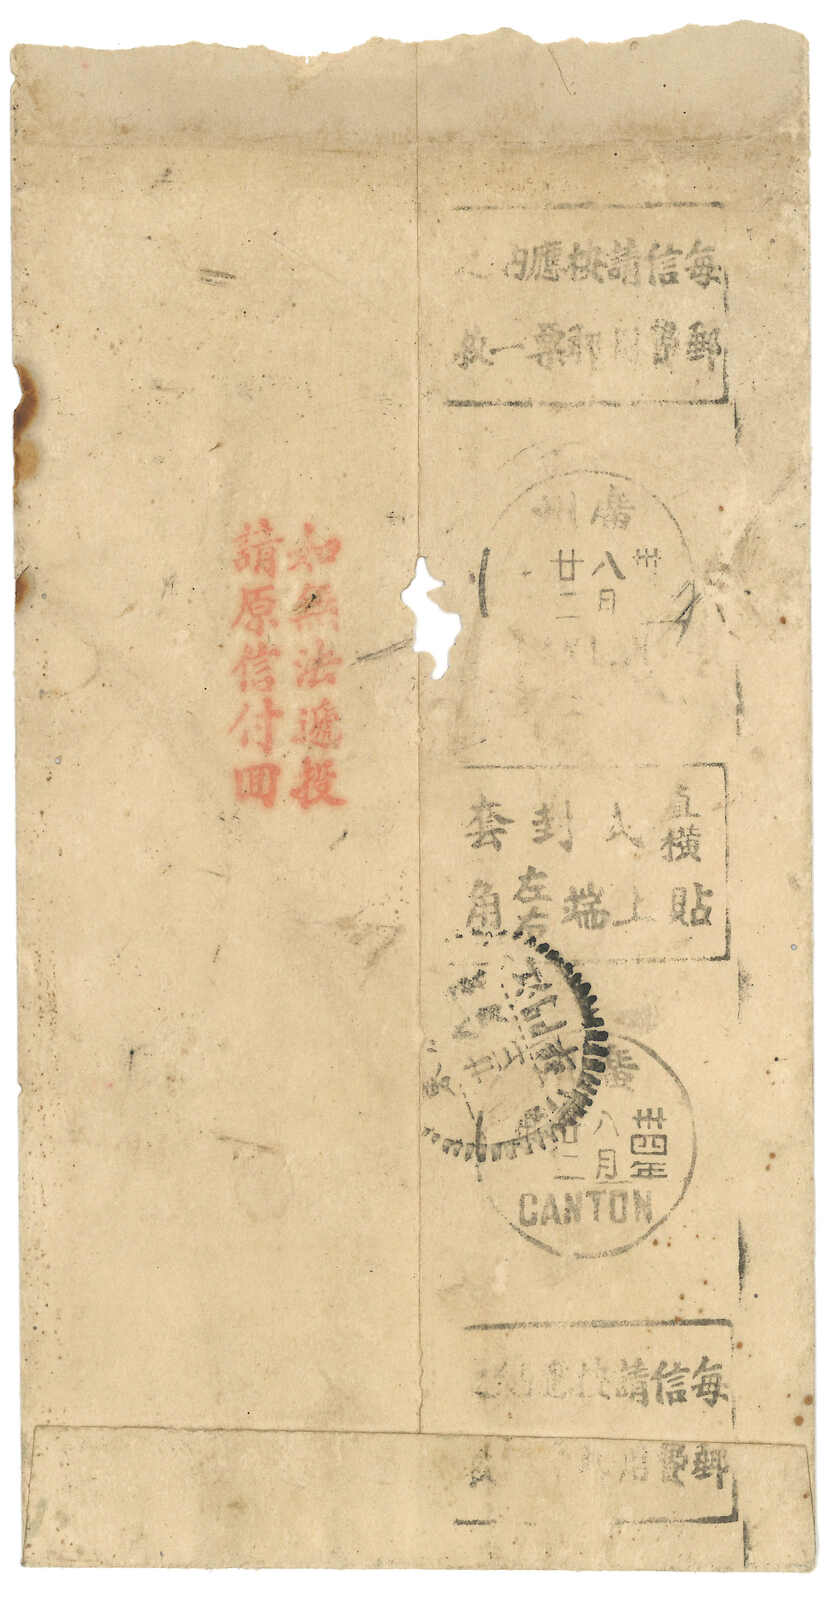 每信請按應納之
郵費用郵票一枚
廣州
卅
八月
廿二
如無法遞投
請原信付回
直橫式封套
貼上端左右角
廣
卅四年
八月
廿二
CANTON
每信請按應納之
郵費用